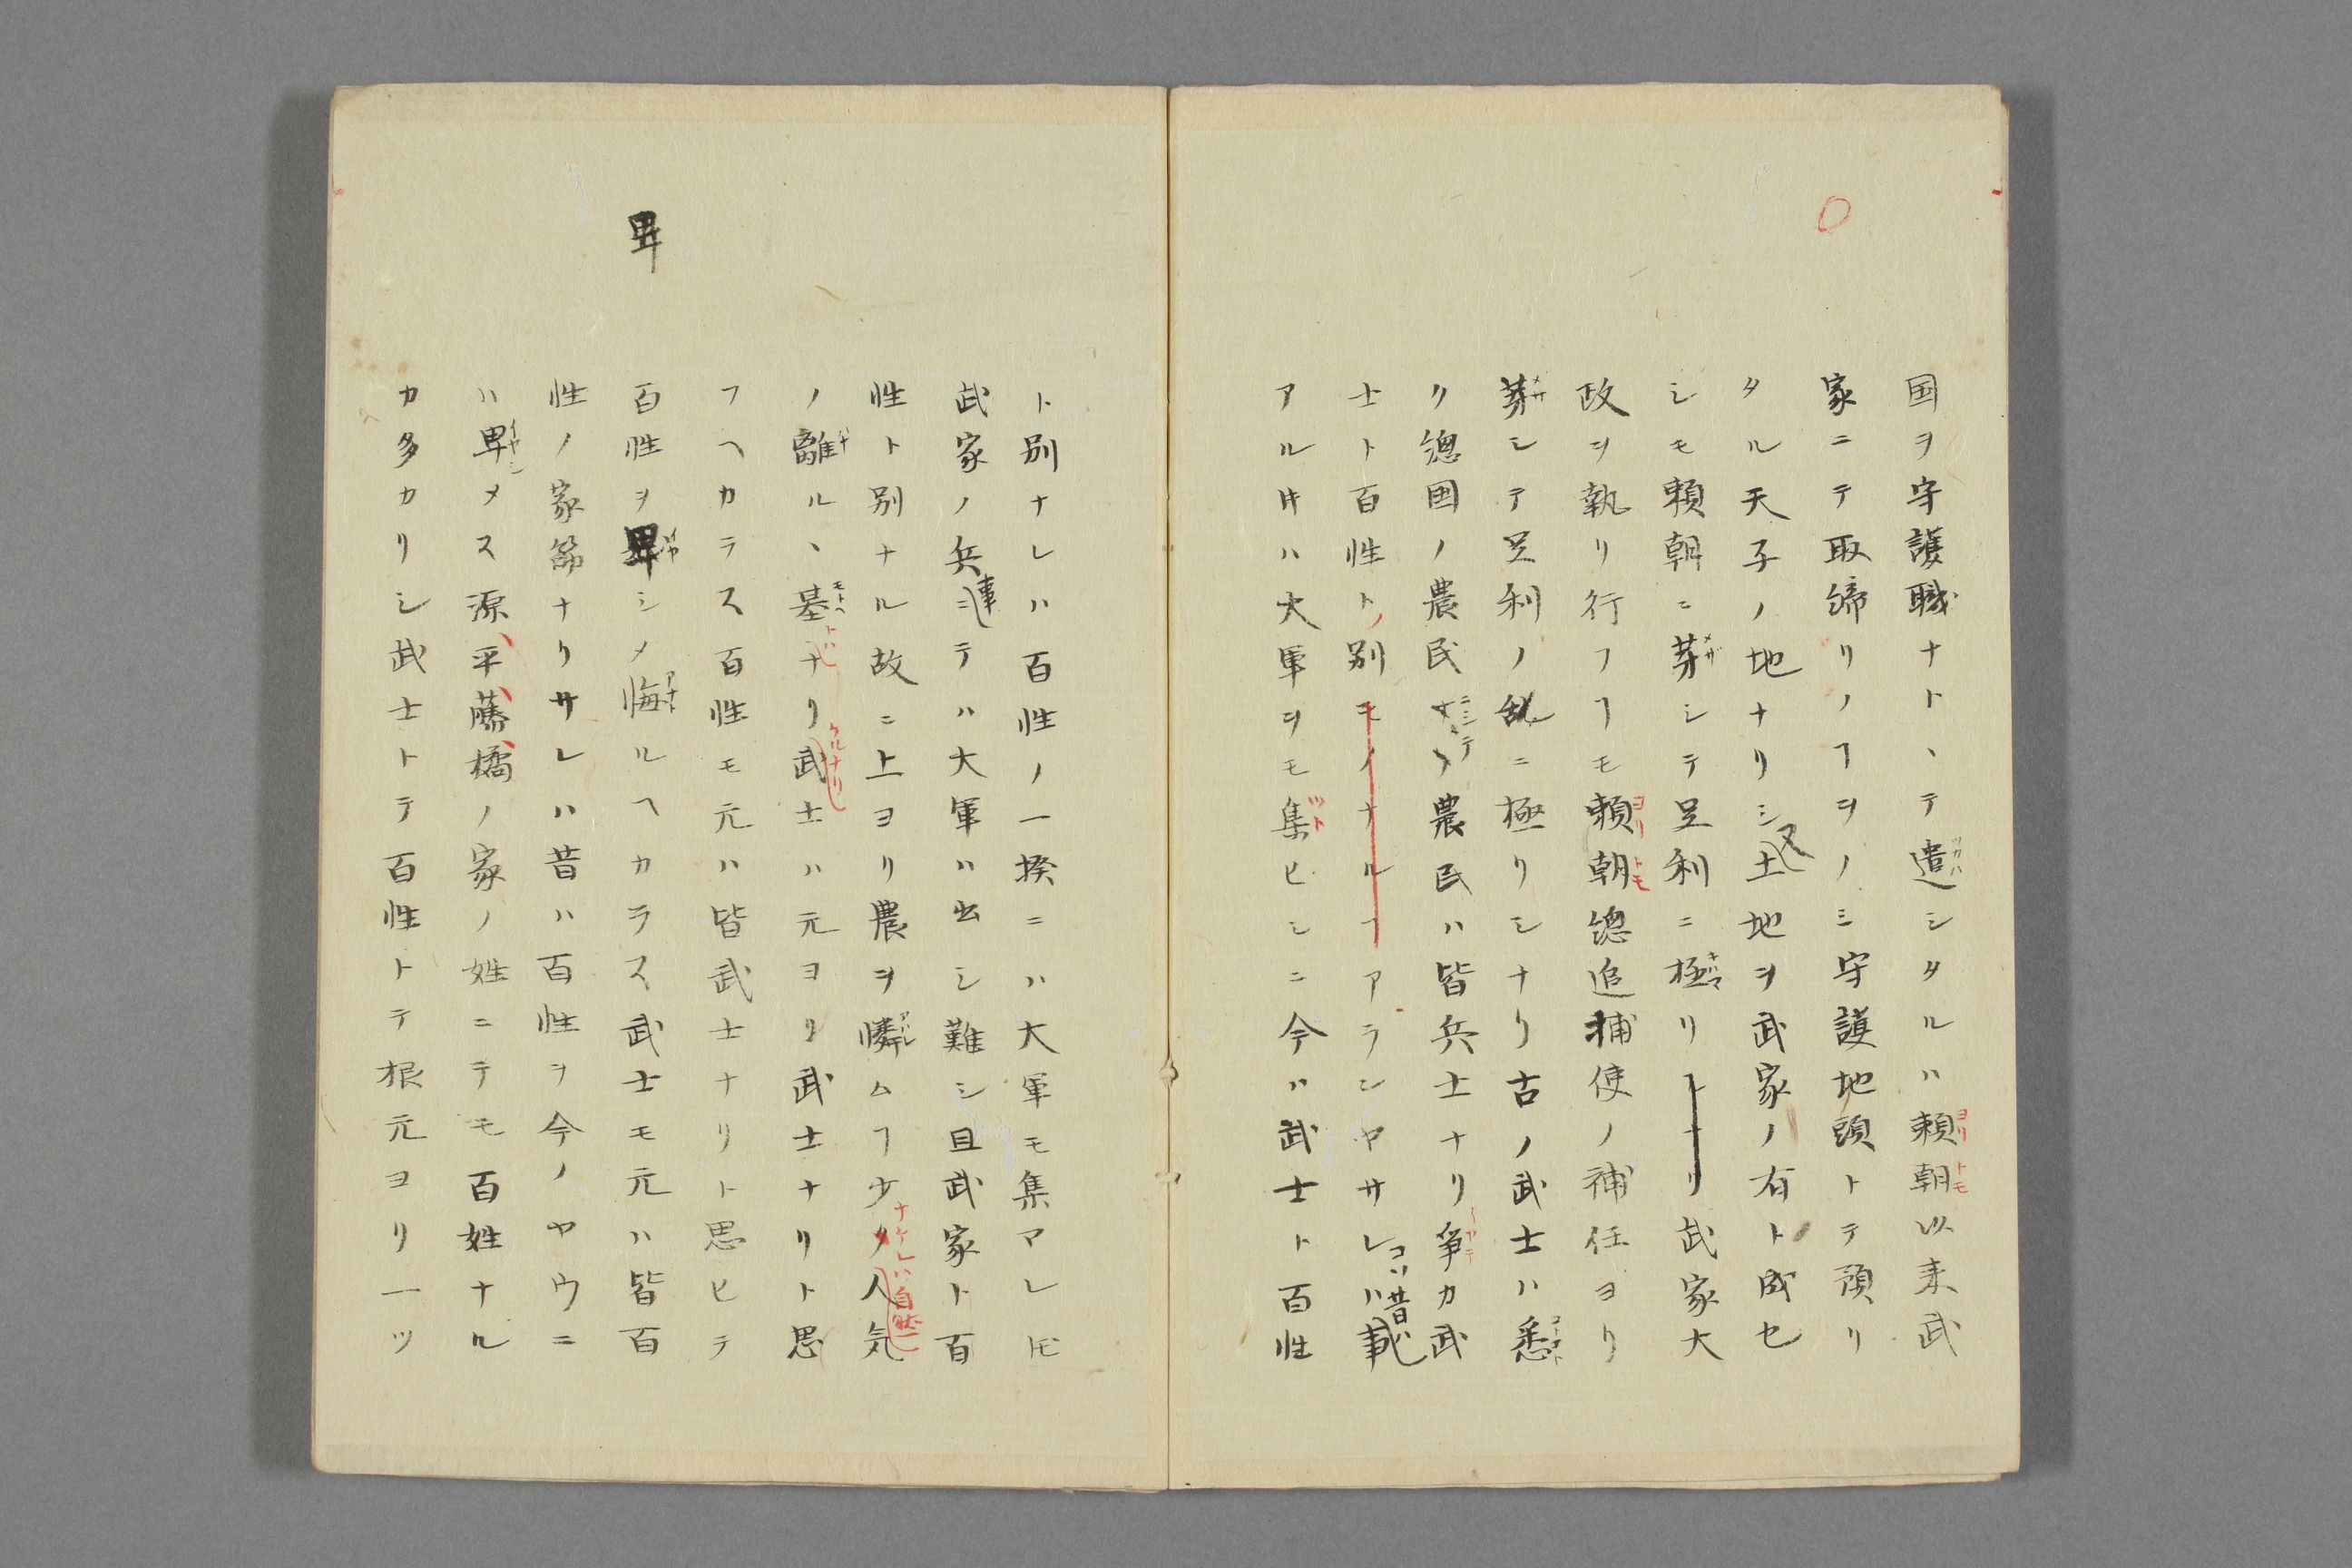 国ヲ守護職ナト、テ遣シタルハ頼朝以来武
家ニテ取締リノヿヲノミ守護地頭トテ預リ
タル天子ノ地ナリシ又土地ヲ武家ノ有ト成セ
シモ頼朝ニ芽シテ足利ニ極リトナリ武家大
政ヲ執リ行フヿモ頼朝總追捕使ノ補任ヨリ
芽シテ足利ノ乱ニ極リシナリ古ノ武士ハ悉
ク總国ノ農民ニシテ農民ハ皆兵士ナリ争カ武
士ト百性トノ別モノナルヿアランヤサレハコソ昔ハ事
アル時ハ大軍ヲモ集ヒシニ今ハ武士ト百性
ト別ナレハ百性ノ一揆ニハ大軍モ集マレ𪜈
武家ノ兵事ニテハ大軍ハ出シ難シ且武家ト百
性ト別ナル故ニ上ヨリ農ヲ憐ムヿ少ナケレハ自然人気
ノ離ル、基トハナリケルナリ武士ハ元ヨリ武士ナリト思
フヘカラス百性モ元ハ皆武士ナリト思ヒテ
卑
百性ヲ卑シメ侮ルヘカラス武士モ元ハ皆百
性ノ家筋ナリサレハ昔ハ百性ヲ今ノヤウニ
ハ卑メス源平藤橘ノ家ノ姓ニテモ百姓ナル
カ多カリシ武士トテ百性トテ根元ヨリ一ツ